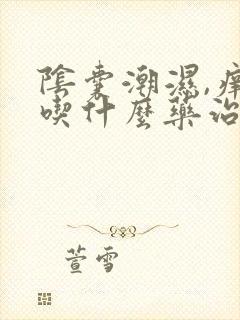 陰囊潮濕,痒
喫什麼藥治
萱雪